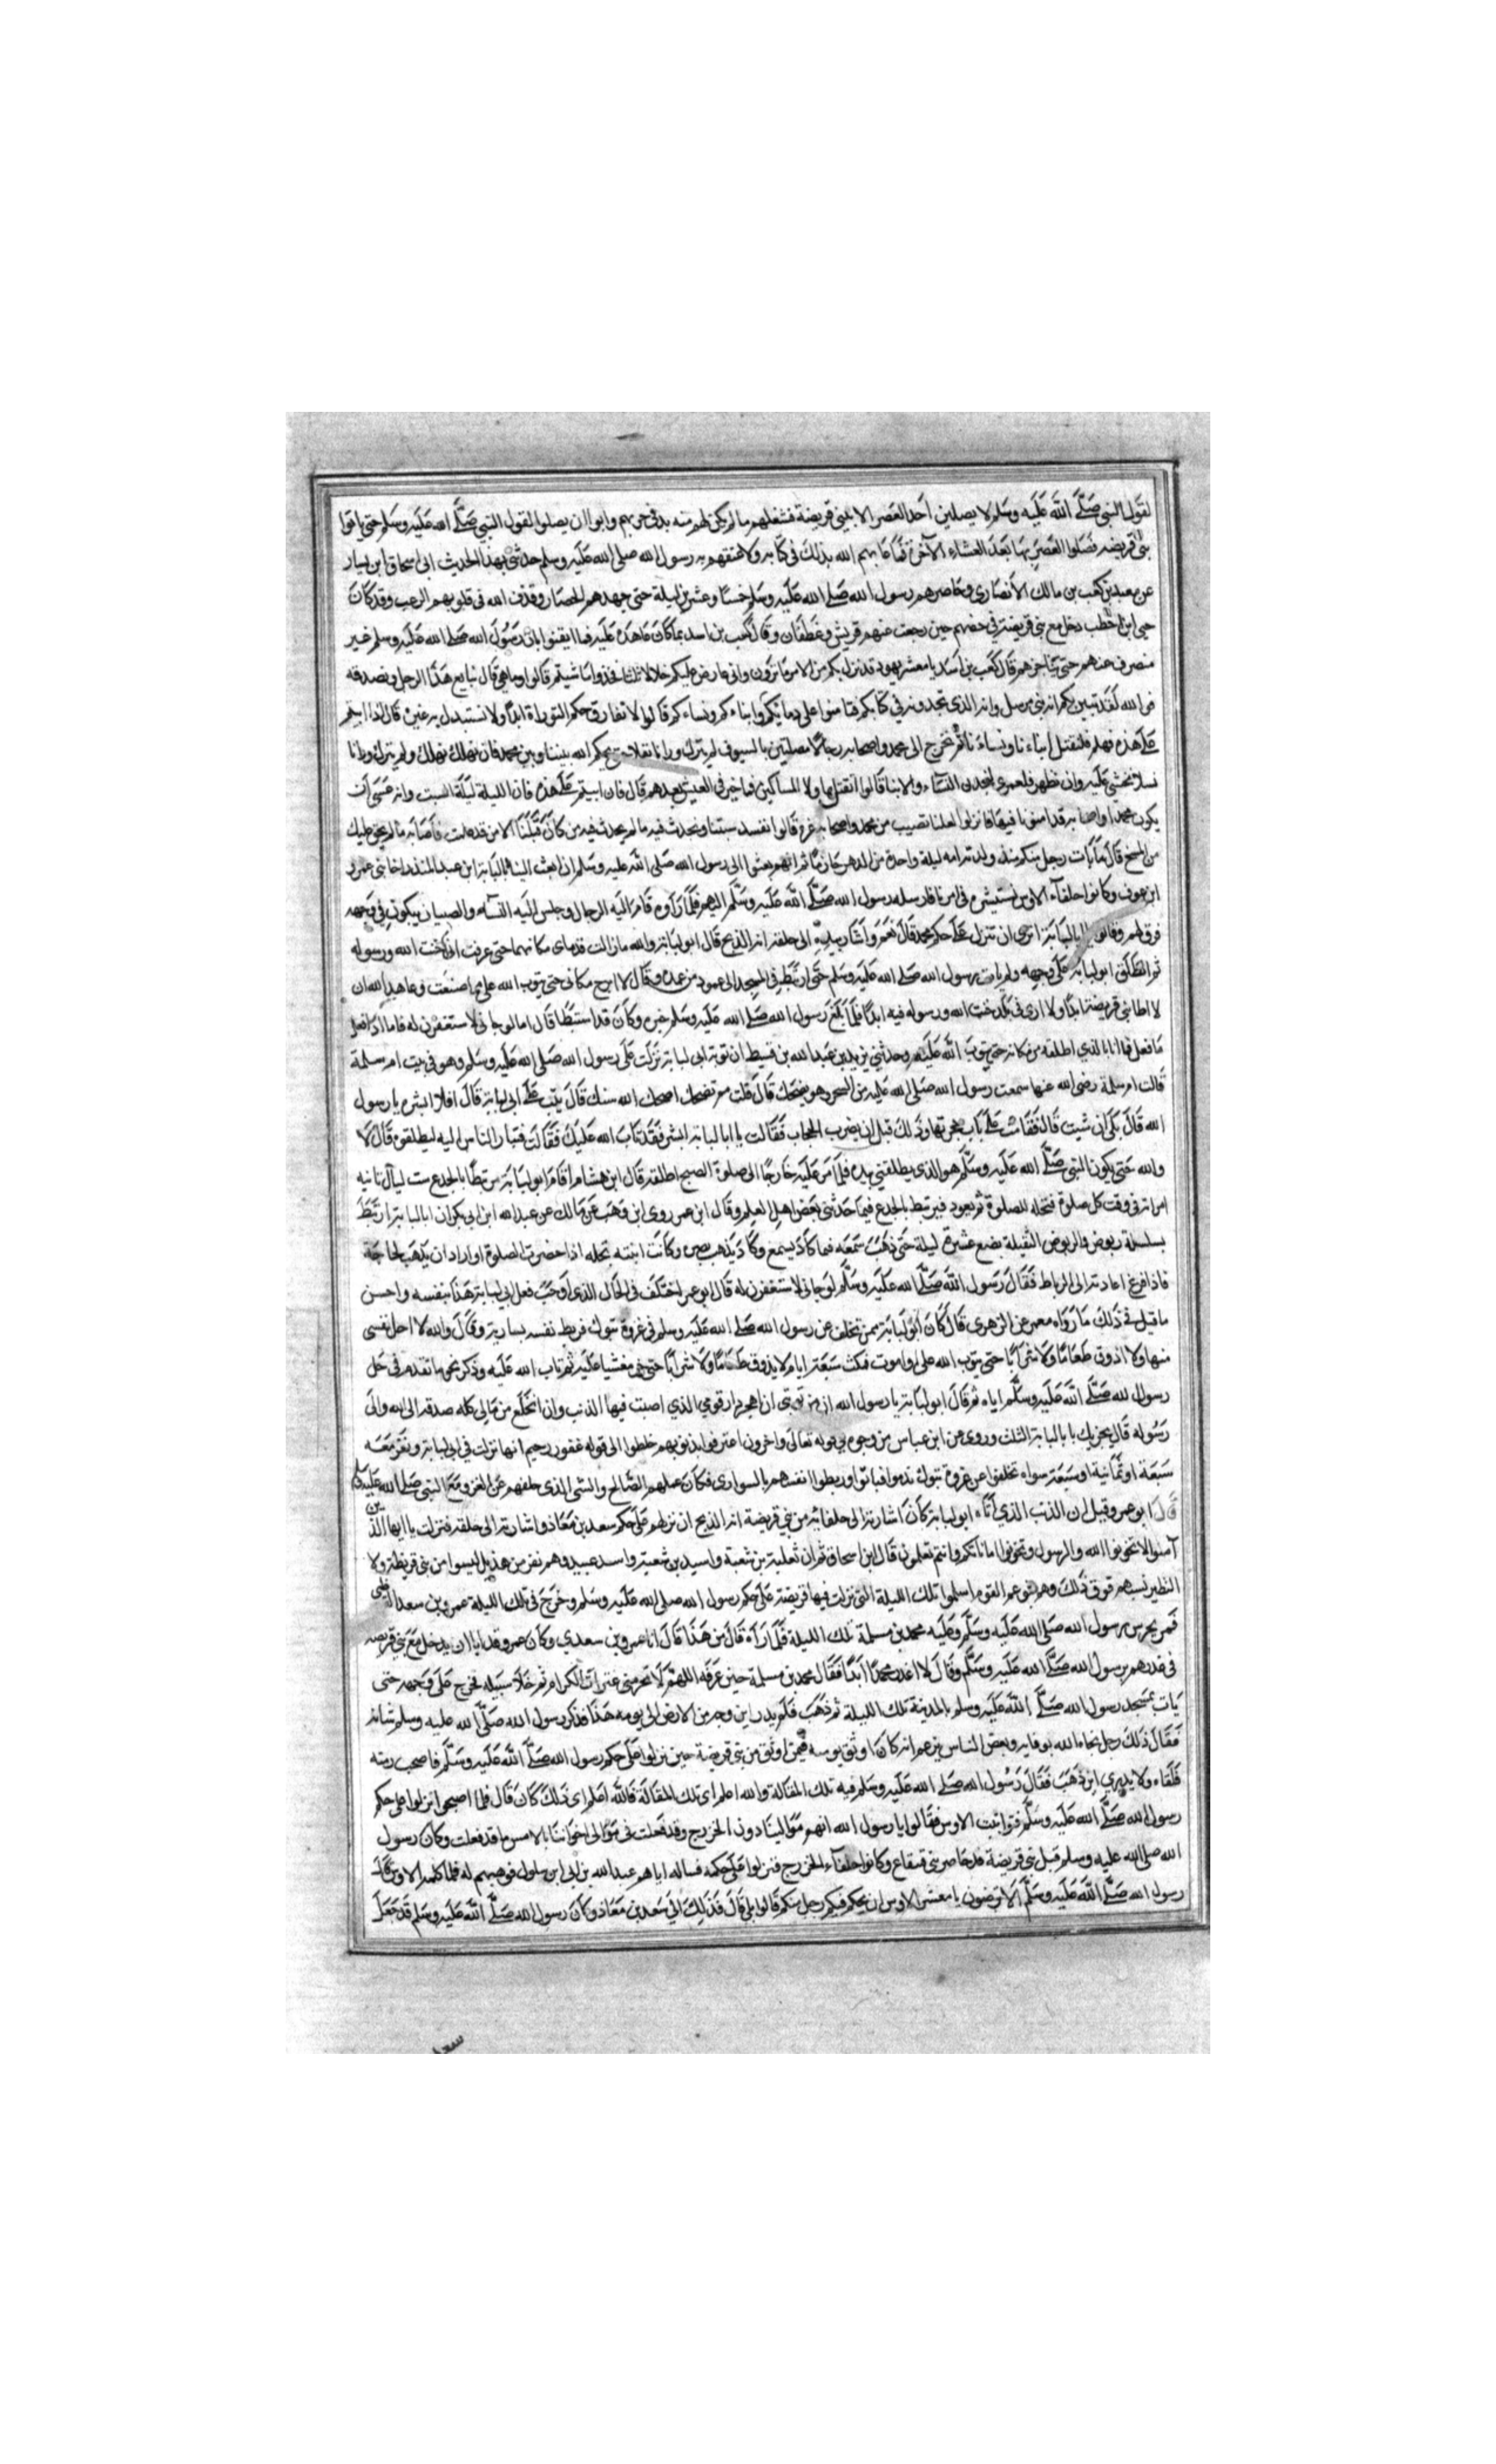 لقول النبي صلى الله عليه وسلم لا يصلين احد العصر الا ببني قريضة فشغلهم ما لم يكن لهم منه بد في حربهم وابوا ان يصلوا لقول النبي صلى الله عليه وسلم حتى ياتوا
بني قريضه فصلوا العصر بها بعد العشاء الآخرة فما عابهم الله بذلك في كتابه ولا عنفهم به رسول الله صلى الله عليه وسلم حدثني بهذا الحديث ابي اسحاق ابن يسار
عن معبد بن كعب بن مالك الأنصاري وحاصرهم رسول الله صلى الله عليه وسلم خمسا وعشرين ليلة حتى جهدهم الحصار وقذف الله في قلوبهم الرعب وقد كان
حيي ابن اخطب دخل مع بني قريضة في حصنهم حين رجعت عنهم قريش وغطفان وقال كعب بن اسد بما كان عاهده عليه فلما ايقنوا بان رسول الله صلى الله عليه وسلم غير
منصرف عنهم حتى يناجزهم قال كعب بن أسد يا معشر يهود قد نزل بكم من الامر ما ترون واني عارض عليكم خلالا ثلثا فخذوا بما شيتم قالوا وما هي قال نبايع هذا الرجل ونصدقه
فوالله لقد تبين لكم انه نبي مرسل وانه الذي تجدونه في كتابكم فتامنوا على دمايكم وابناءكم ونساءكم قالوا لا نفارق حكم التوراة ابدا ولا نستبدل به غيره قال فاذا ابيتم
علي هذه فهلم فلنقتل أبناءنا ونساءنا ثم نخرج الى محمد واصحابه رجالا مصلتين بالسيوف لم نترك وراءنا ثقلا حتى يحكم الله بيننا وبين محمد فان نهلك نهلك ولم نترك وراءنا
نسلا نخشى عليه وان نظهر فلعمري لنجدن النساء والابنا قالوا انقتل هولا المساكين فما خير في العيش بعدهم قال فان ابيتم علي هذه فان الليلة ليلة السبت وانه عسى أن
يكون محمد واصحابه قد امنونا فيها فانزلوا لعلنا نصيب من محمد واصحابه غرة قالوا نفسد سبتنا ونحدث فيه ما لم يحدث فيه من كان قبلنا الا من قد علمت فأصابه ما لم يخف عليك
من المسخ قال ما بات رجل منكم منذ ولدته امه ليلة واحدة من الدهر حازما ثم انهم بعثوا الى رسول الله صلى الله عليه وسلم ان ابعث الينا ابا لبابة ابن عبد المنذر اخا بني عمرو
ابن عوف وكانوا حلفآء الاوس نستشيره في امرنا فارسله رسول الله صلى الله عليه وسلم اليهم فلما رأوه قام اليه الرجال وجلس اليه النساء والصبيان يبكون في وجهه
فرق لهم وقالوا يا ابا لبابة اترى ان ننزل على حكم محمد قال نعم وأشار بيده الى حلقه انه الذبح قال ابو لبابة والله ما زالت قدماي مكانهما حتى عرفت اني خنت الله ورسوله
ثم انطلق ابو لبابة على وجهه ولم يات رسول الله صلى الله عليه وسلم حتى ارتبط في المسجد الى عمود من عمده وقال لا ابرح مكاني حتى يتوب الله علي مما صنعت وعاهد الله ان
لا اطا بني قريضة ابدا ولا ارى في بلد خنت الله ورسوله فيه ابدا فلما بلغ رسول الله صلى الله عليه وسلم خبره وكان قد استبطأ قال اما لو جاني لاستغفرن له فاما اذ فعل
ما فعل فما انا بالذي اطلقه من مكانه حتى يتوب الله عليه وحدثني يزيد بن عبد الله بن قسيط ان توبة ابي لبابة نزلت على رسول الله صلى الله عليه وسلم وهو في بيت ام سلمة
قالت ام سلمة رضي الله عنها سمعت رسول الله صلى الله عليه من السحر وهو يضحك قال قلت مم تضحك اضحك الله سنك قال تيب علي ابي لبابة قال افلا ابشره يا رسول
الله قال بلى ان شيت قال فقامت علي باب حجرتها وذلك قبل ان يضرب الحجاب فقالت يا ابا لبابة ابشر فقد تاب الله عليك فقالت فثار الناس اليه ليطلقوه قال لا
والله حتى يكون النبي صلى الله عليه وسلم هو الذي يطلقني بيده فلما مر عليه خارجا الى صلوة الصبح اطلقه قال ابن هشام أقام ابو لبابة مرتبطا بالجذع ست ليال تاتيه
امراته في وقت كل صلوة فتحله للصلوة ثم يعود فيرتبط بالجذع فيما حدثني بعض اهل العلم وقال ابو عمر روى ابن وهب عن مالك عن عبد الله ابن ابي بكر ان ابا لبابة ارتبط
بسلسلة ربوض والربوض الثقيلة بضع عشرة ليلة حتى ذهب سمعه فما كاد يسمع وكاد يذهب بصره وكانت ابنته تحله اذا حضرت الصلوة او اراد ان يذهب لحاجة
فاذا فرغ اعادته الى الرباط فقال رسول الله صلى الله عليه وسلم لو جاني لاستغفرن له قال ابو عمر اختلف في الحال الذي أوجب فعل ابي لبابة هذا بنفسه واحسن
ما قيل في ذلك ما رواه معمر عن الزهري قال كان أبو لبابة ممن تخلف عن رسول الله صلى الله عليه وسلم في غزوة تبوك فربط نفسه بسارية وقال والله لا احل نفسي
منها ولا اذوق طعاما ولا شرابا حتى يتوب الله علي او اموت فمكث سبعة ايام لا يذوق طعاما ولا شرابا حتى خر مغشيا عليه ثم تاب الله عليه وذكر نحو ما تقدم في حل
رسول الله صلى الله عليه وسلم اياه ثم قال ابو لبابة يا رسول الله ان من توبتي ان اهجر دار قومي الذي اصبت فيها الذنب وان انخلع من مالي كله صدقة الى الله والى
رسوله قال يجزيك يا ابا لبابة الثلث وروي عن ابن عباس من وجوه في قوله تعالى واخرون اعترفوا بذنوبهم خلطوا الى قوله غفور رحيم انها نزلت في ابي لبابة ونفر معه
سبعة او ثمانية او سبعة سواه تخلفوا عن غزوة تبوك ندموا فتابوا وربطوا انفسهم بالسواري فكان عملهم الصالح والسيئ الذي خلفهم عن الغزو مع النبي صلى الله عليه
قال ابو عمر وقيل ان الذنب الذي أتاه ابو لبابة كان اشارته الى حلفائه من بني قريضة انه الذبح ان نزلتم على حكم سعد بن معاذ واشارته الى حلقه فنزلت يا ايها الذين
آمنوا لا تخونوا الله والرسول وتخونوا اماناتكم وانتم تعلمون قال ابن اسحاق ثم ان ثعلبة بن شعبة واسيد بن شعبة واسد عبيد وهم نفر من هذيل ليسوا من بني قريظة ولا
النظير نسبهم فوق ذلك وهم بنو عم القوم اسلموا تلك الليلة التي نزلت فيها قريضة على حكم رسول الله صلى الله عليه وسلم وخرج في تلك الليلة عمرو بن سعد القرظي
فمر بحرس رسول الله صلى الله عليه وسلم وعليه محمد بن مسلمة تلك الليلة فلما رآه قال من هذا قال انا عمرو بن سعدي وكان عمرو قد ابا ان يدخل مع بني قريضه
في غدرهم برسول الله صلى الله عليه وسلم وقال لا اغدر محمدا ابدا فقال محمد بن مسلمة حين عرفه اللهم لا تحرمني عثرات الكرام ثم خلا سبيله فخرج على وجهه حتى
بات بمسجد رسول الله صلى الله عليه وسلم بالمدينة تلك الليلة ثم ذهب فلم يدر اين وجه من الارض الى يومه هذا فذكر رسول الله صلى الله عليه وسلم شانه
فقال ذلك رجل نجاه الله بوفايه وبعض الناس يزعم انه كان اوثق برمة فيمن اوثق من بني قريضة حين نزلوا على حكم رسول الله صلى الله عليه وسلم فاصبحت رمته
ملقاه ولا يدري اين ذهب فقال رسول الله صلى الله عليه وسلم فيه تلك المقالة والله اعلم اي تلك المقالة فالله اعلم اي ذلك كان قال فلما اصبحوا نزلوا على حكم
رسول الله صلى الله عليه وسلم فتواثبت الاوس فقالوا يا رسول الله انهم موالينا دون الخزرج وقد فعلت في موالى اخواننا بالامس ما قد فعلت وكان رسول
الله صلى الله عليه وسلم قبل بني قريضة قد حاصر بني قينقاع وكانوا حلفآء الخزرج فنزلوا على حكمه فساله اياهم عبد الله بن ابي ابن سلول فوهبهم له فلما كلمه الاوس قال
رسول الله صلى الله عليه وسلم ألا ترضون يا معشر الاوس ان يحكم فيكم رجل منكم قالوا بلى قال فذلك الي سعد بن معاذ وكان رسول الله صلى الله عليه وسلم قد جعل